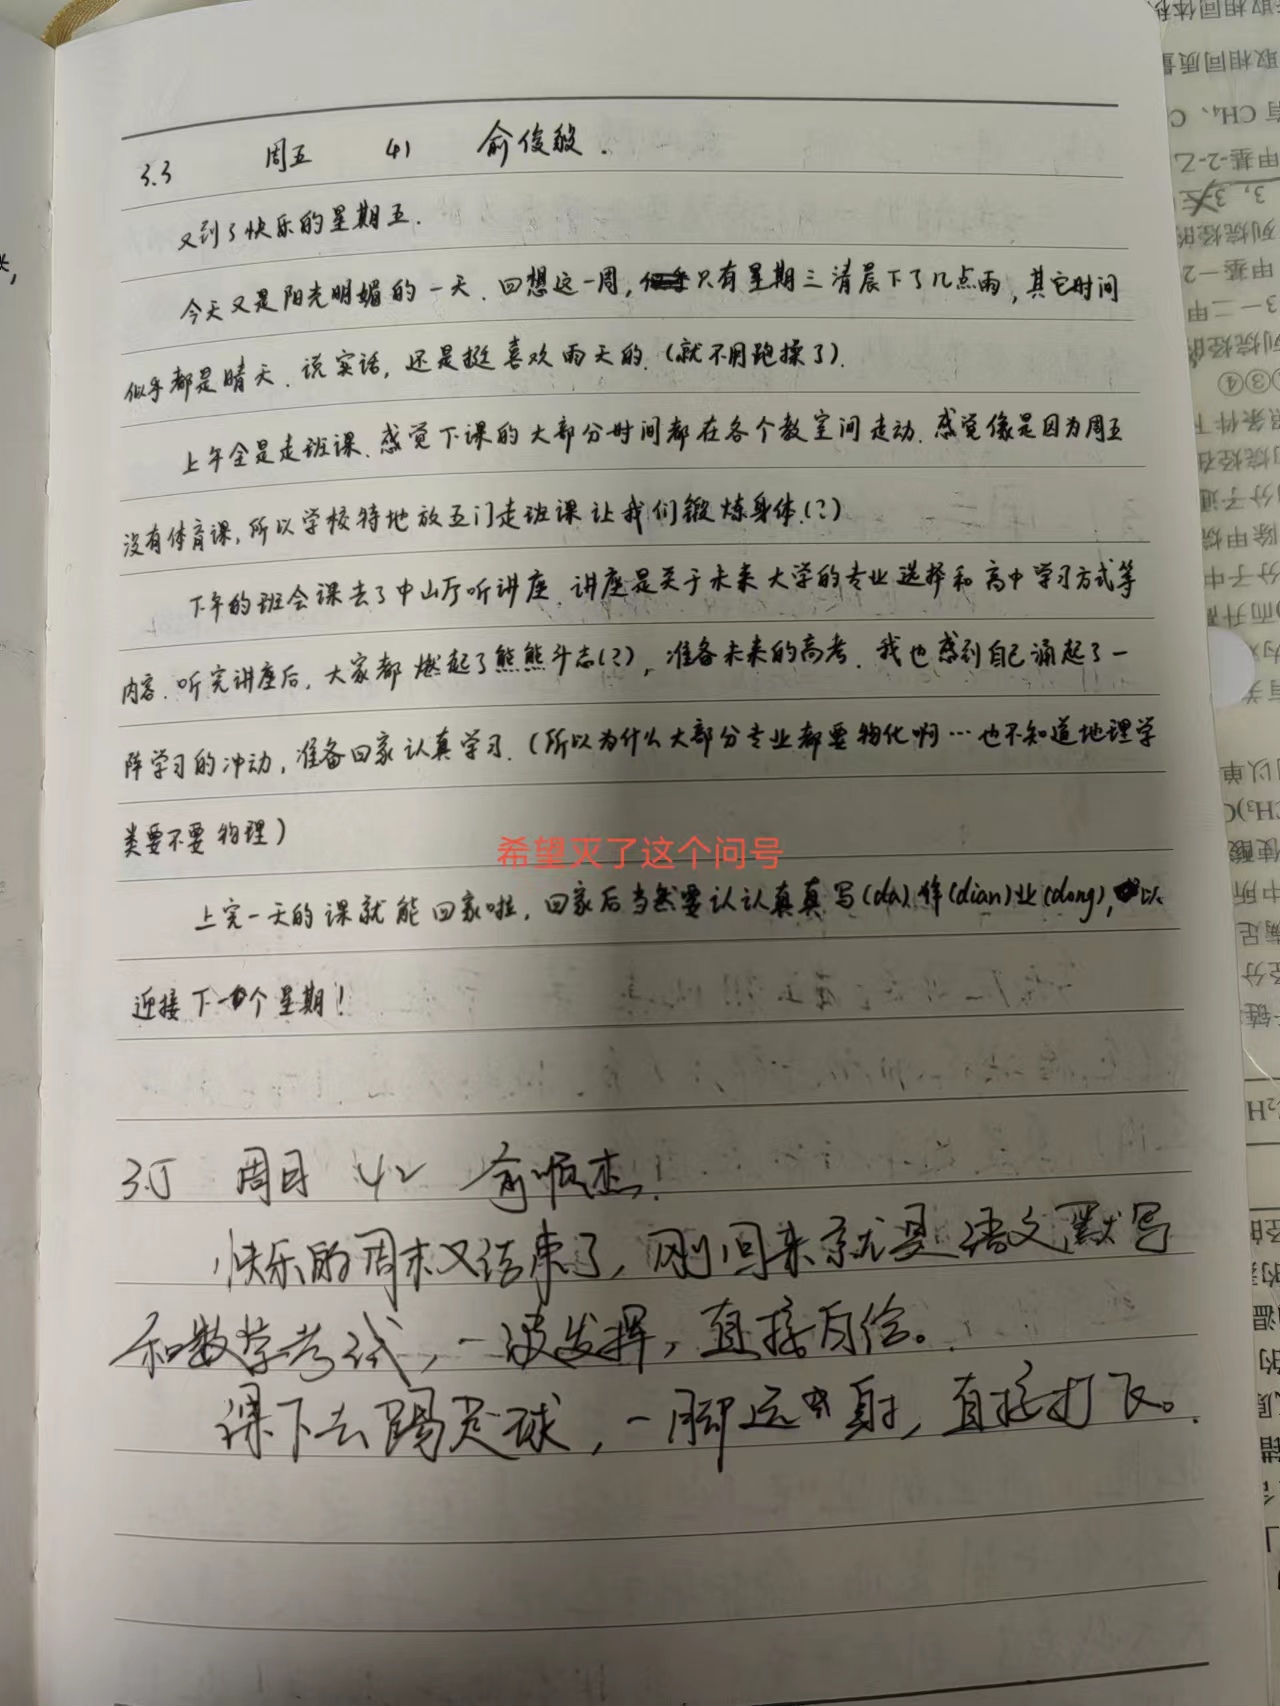 3.3 周五 41 俞俊毅.
又到了快乐的星期五.
今天又是阳光明媚的一天.回想这一周,只有星期三清晨下了几点雨,其它时间
似乎都是晴天.说实话,还是挺喜欢雨天的.(就不用跑操了).
上午全是走班课.感觉下课的大部分时间都在各个教室间走动.感觉像是因为周五
没有体育课,所以学校特地放五门走班课让我们锻炼身体.(?)
下午的班会课去了中山厅听讲座.讲座是关于未来大学的专业选择和高中学习方式等
内容.听完讲座后,大家都燃起了熊熊斗志(?),准备未来的高考.我也感到自己涌起了一
阵学习的冲动,准备回家认真学习.(所以为什么大部分专业都要物化啊…也不知道地理学
类要不要物理)
希望灭了这个问号
上完一天的课就能回家啦,回家后当然要认认真真写(da)作(dian)业(dong),以
迎接下一个星期!
3.5 周日 42 俞顺杰.
快乐的周末又结束了,刚回来就是语文默写
和数学考试,一波发挥,直接白给。
课下去踢足球,一脚远射,直接打飞。
CH₄、C
甲基-2-乙
列烷烃的
甲基一2
3一二甲
列烷烃的
③④
除甲烷
分子中